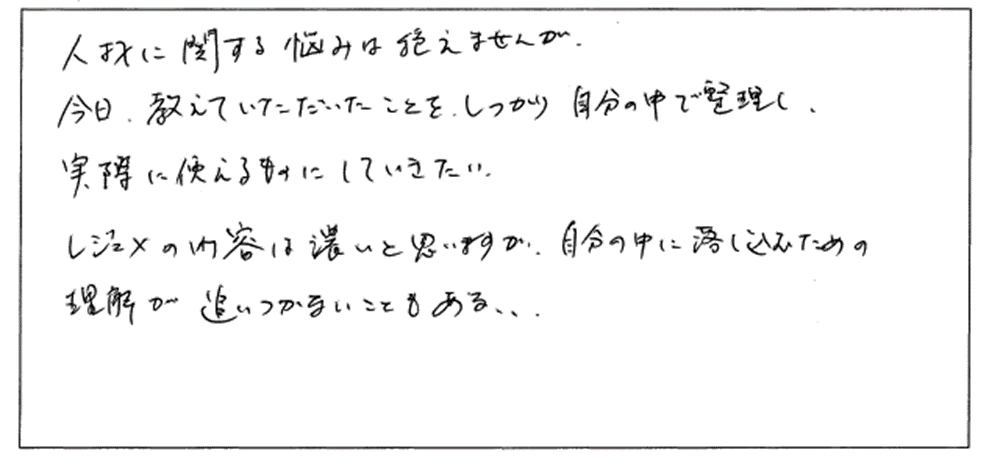 人材に関する悩みは絶えませんが、
今日、教えていただいたことを、しっかり自分の中で整理し、
実際に使えるものにしていきたい。
レジュメの内容は濃いと思いますが、自分の中に落し込むための
理解が追いつかないこともある、、、